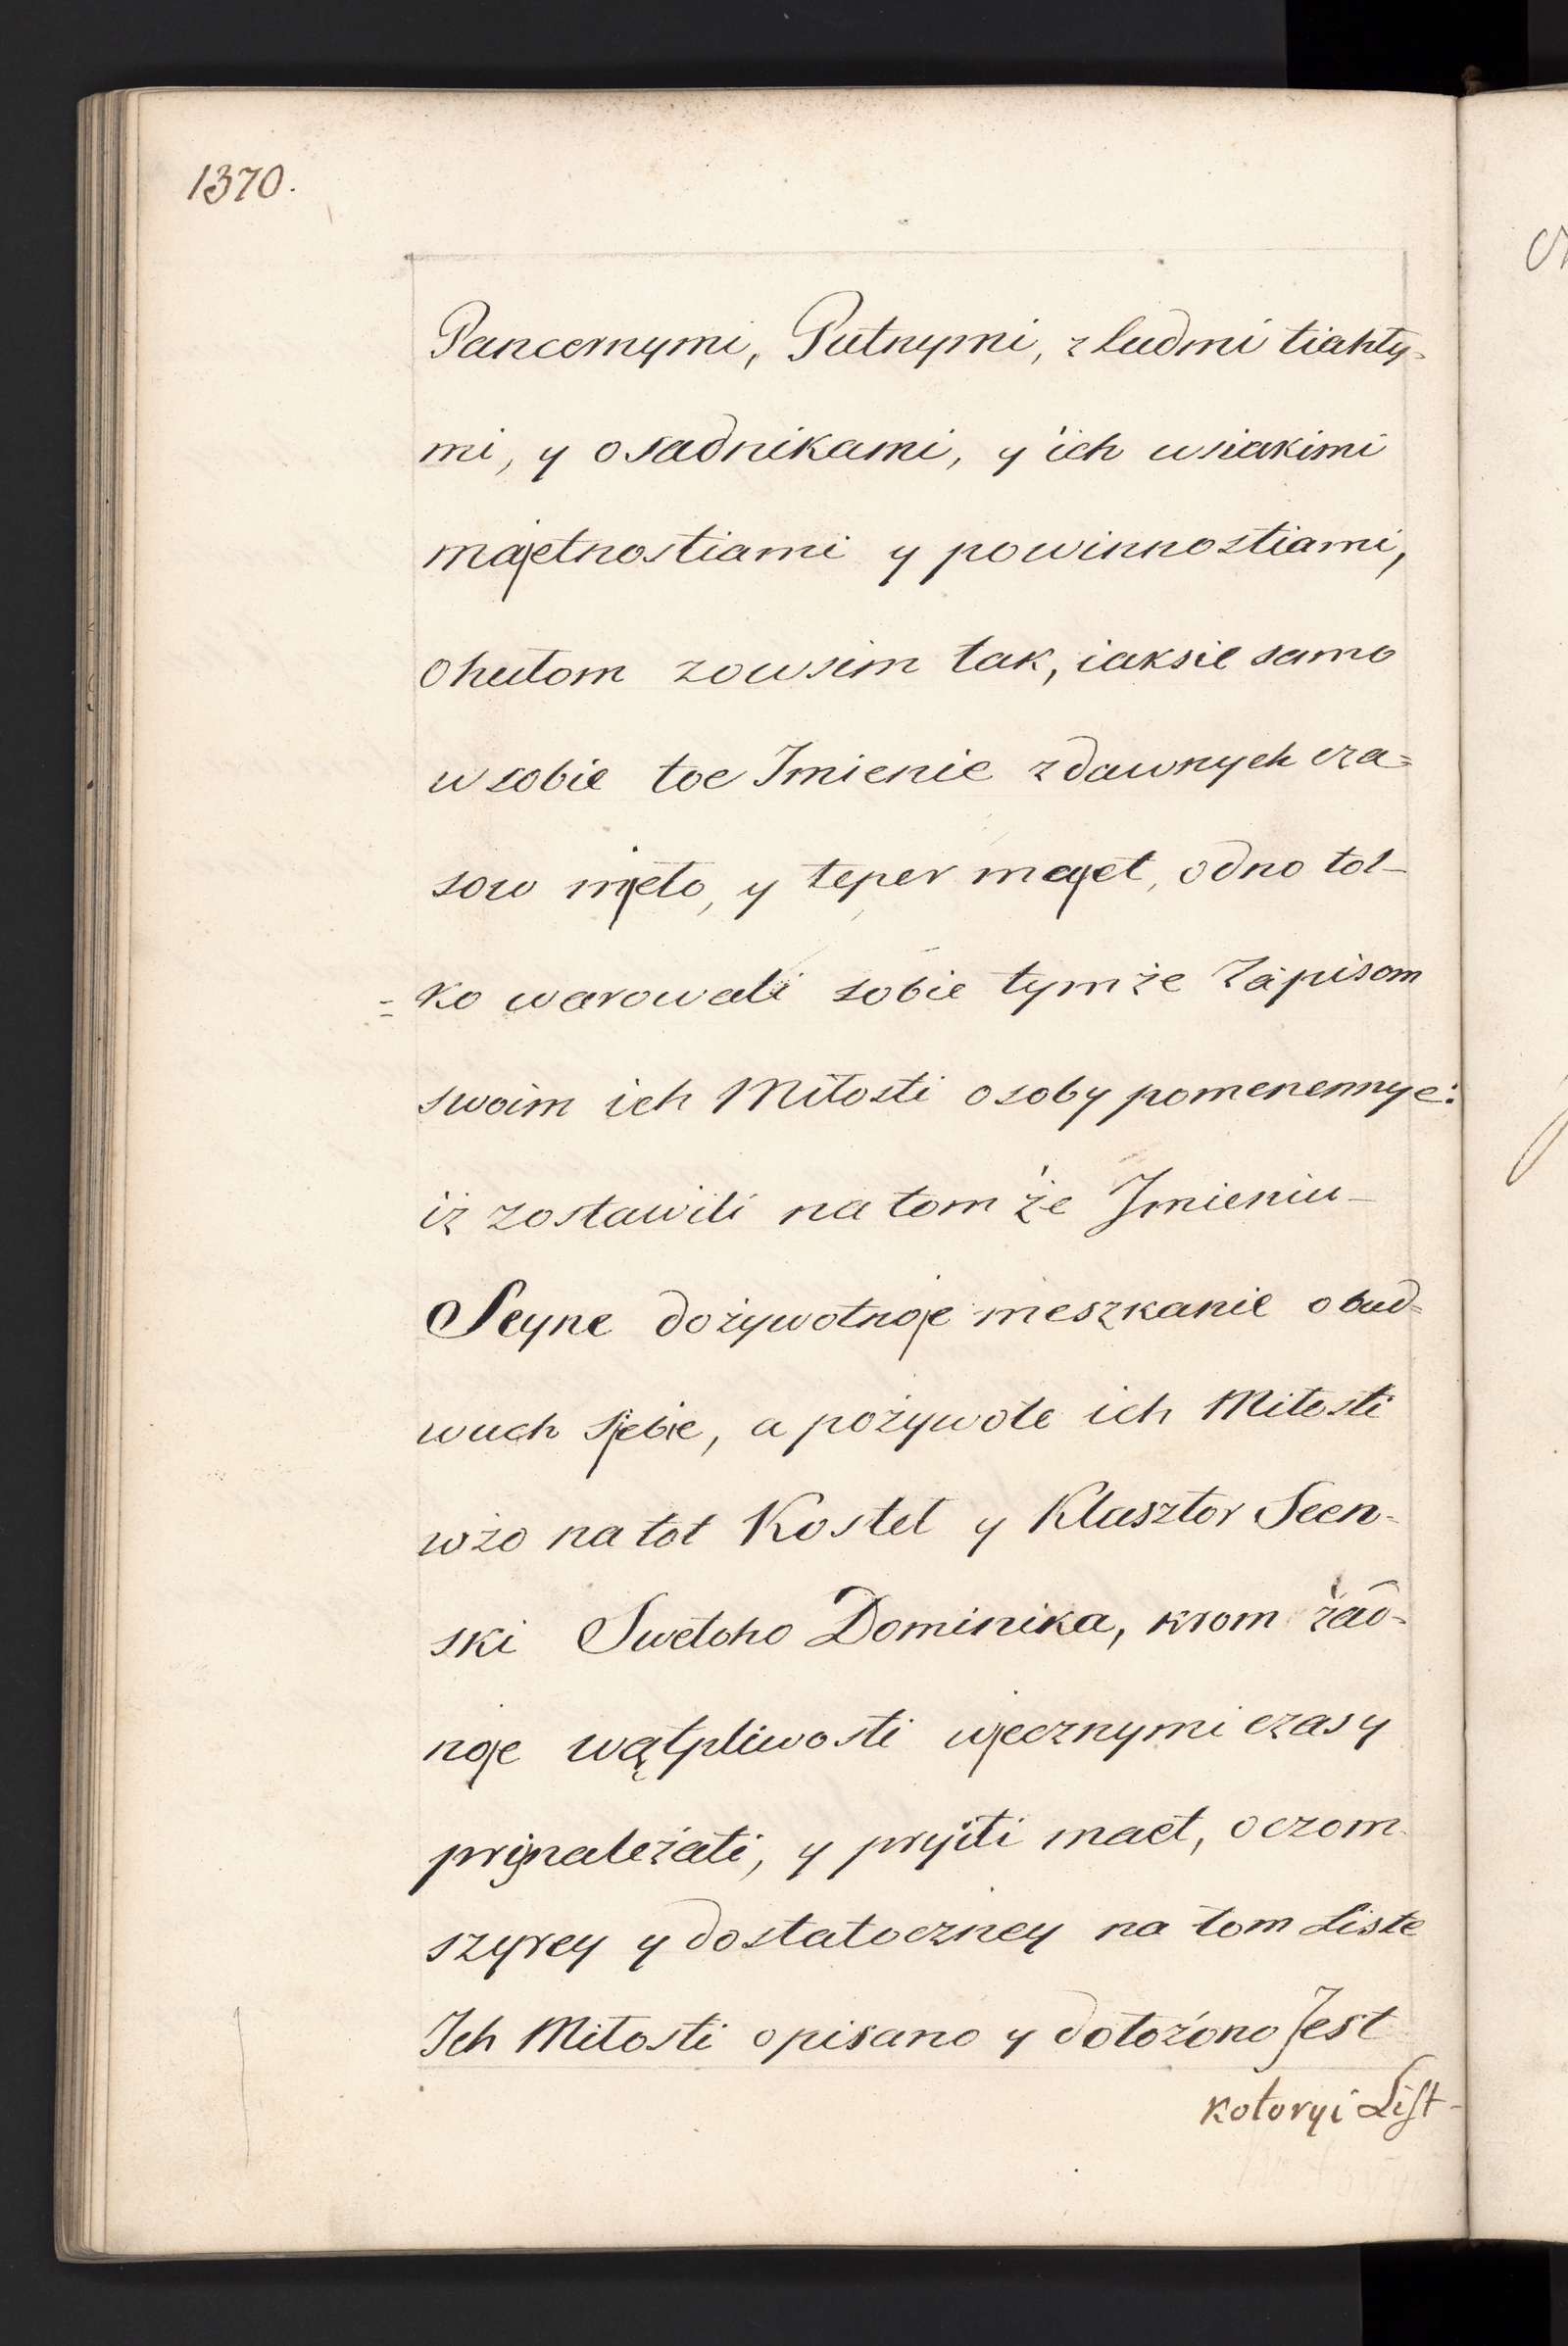 1370.
Pancernymi, Putnymi, z ludmi tiahły-
mi, y osadnikami, y ich wsiakimi
majetnostiami y powinnostiami,
ohułom zowsim tak, iaksie samo
w sobie toe Imienie z dawnych cza=
sow mjeło, y teper majet, odno tol-
= ko warowali sobie tymże Zapisom
swoim ich Miłosti osoby pomenennye:
iż zostawili na tom że Imieniu-
Seyne dożywotnoje meszkanie obud=
wuch sjebie, a pożywote ich Miłosti
wżo na tot Kostel y Klasztor Seen-
ski Swetoho Dominika, krom żad-
noje wątpliwosti wjecznymi czasy
prijnależati, y pryiti maet, oczom
szyrey y dostatoczney na tom Liste
Ich Miłosti opisano y dołożono Jest
kotoryi List-